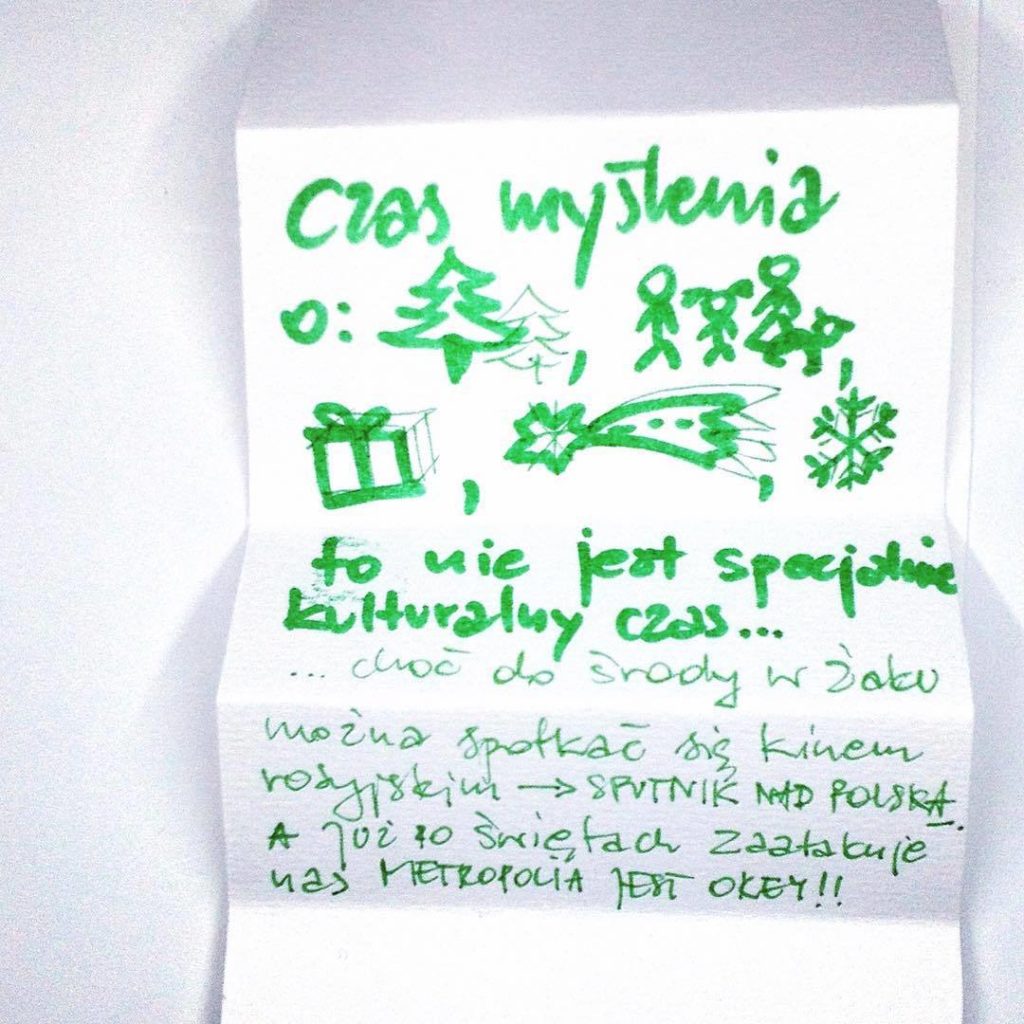 Czas myślenia
o: , ,
, ,
to nie jest specjalnie
kulturalny czas...
... choć do środy w Żaku
można spotkać się kinem
rosyjskim → SPUTNIK NAD POLSKĄ.
A już po świętach zaatakuje
nas METROPOLIA JEST OKEY!!